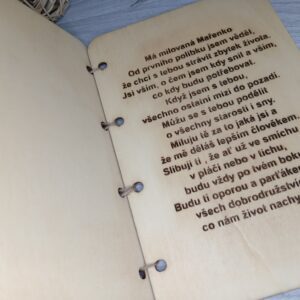 Má milovaná Mařenko
Od prvního polibku jsem věděl,
že chci s tebou strávit zbytek života.
Jsi vším, o čem jsem kdy snil a vším,
co kdy budu potřeboval.
Když jsem s tebou,
všechno ostatní mizí do pozadí.
Můžu se s tebou podělit
o všechny starosti i sny.
Miluju tě za to jaká jsi a
že mě děláš lepším člověkem.
Slibuji ti, že ať už ve smíchu
v pláči nebo v tichu,
budu vždy po tvém boku
Budu ti oporou a parťákem
všech dobrodružstvích
co nám život nachy